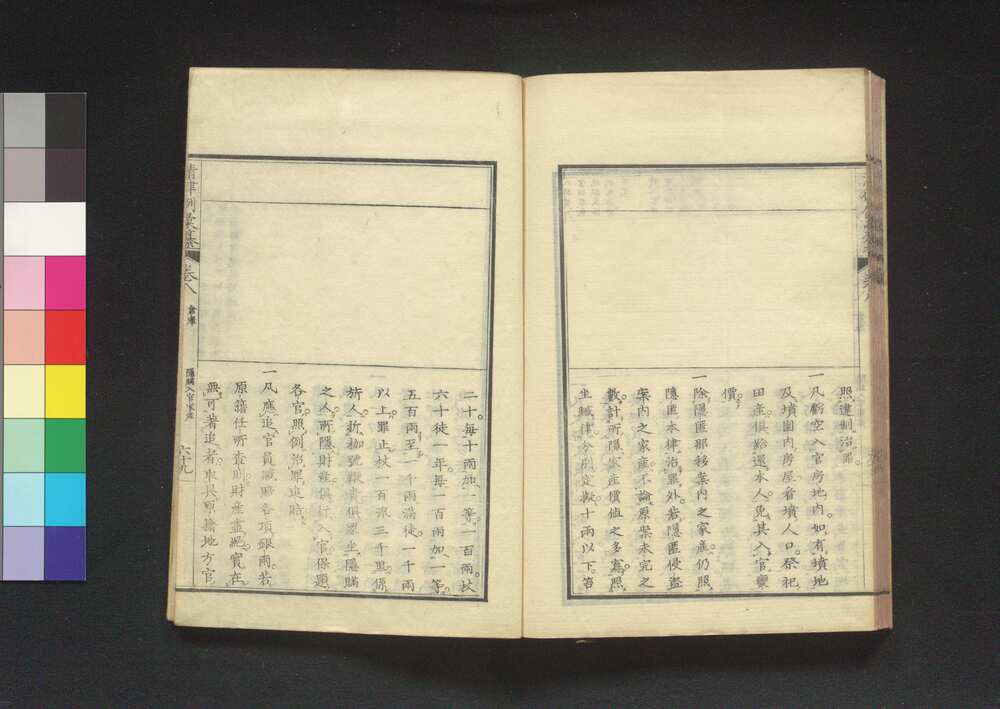 照違制治罪
一凡虧空入官房地內如有墳地
及墳園內房屋看墳人口祭祀
田產俱給還本人免其入官變
價
一除隱匿那移案內之家產仍照
隱匿本律治罪外若隱匿侵盜
案內之家產不論原案未完之
數計所隱家產價值之多寡照
坐贓律分別定擬十兩以下笞
二十每十兩加一等一百兩杖
六十徒一年每一百兩加一等
五百兩至一千兩滿徒一千兩
以上罪止杖一百流三千里係
旂人折枷號鞭責俱罪坐隱瞞
之人所隱財產俱行入官保題
各官照例治罪追賠
一凡應追官員贓賠各項銀兩若
原籍任所查明財產盡絕實在
無可著追者取具原籍地方官
清律例彙纂
卷八
倉庫
隱瞞入官家產
六十九